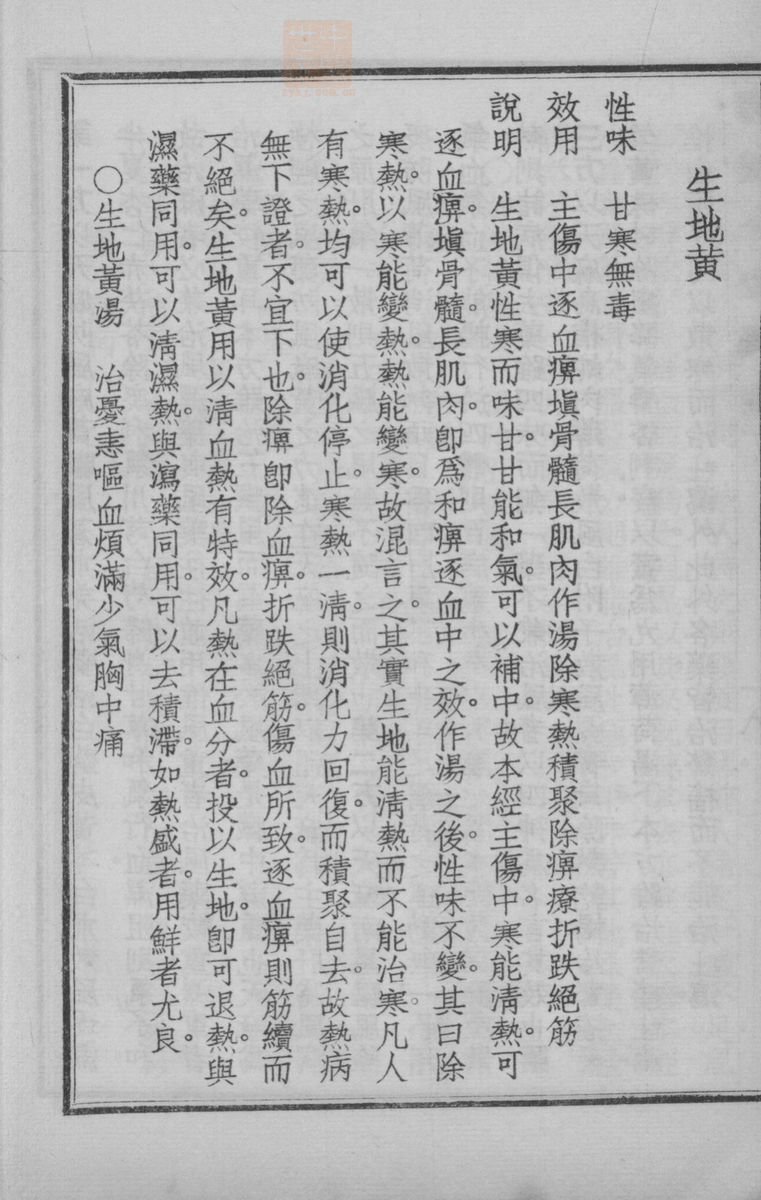 生地黃
性味　甘寒無毒
效用　主傷中逐血痹塡骨髓長肌肉作湯除寒熱積聚除痹療折跌絕筋
說明　生地黃性寒而味甘甘能和氣。可以補中。故本經主傷中。寒能淸熱。可
逐血痹。塡骨髓。長肌肉。卽爲和痹逐血中之效。作湯之後。性味不變。其曰除
寒熱。以寒能變熱。熱能變寒。故混言之。其實生地能淸熱而不能治寒。凡人
有寒熱。均可以使消化停止。寒熱一淸。則消化力回復。而積聚自去。故熱病
無下證者。不宜下也。除痹卽除血痹。折跌絕筋。傷血所致。逐血痹則筋續而
不絕矣。生地黃用以淸血熱有特效。凡熱在血分者。投以生地。卽可退熱。與
濕藥同用。可以淸濕熱。與瀉藥同用。可以去積滯。如熱盛者。用鮮者尤良。
○生地黃湯　治憂恚嘔血煩滿少氣胸中痛
zyk1.com.cn